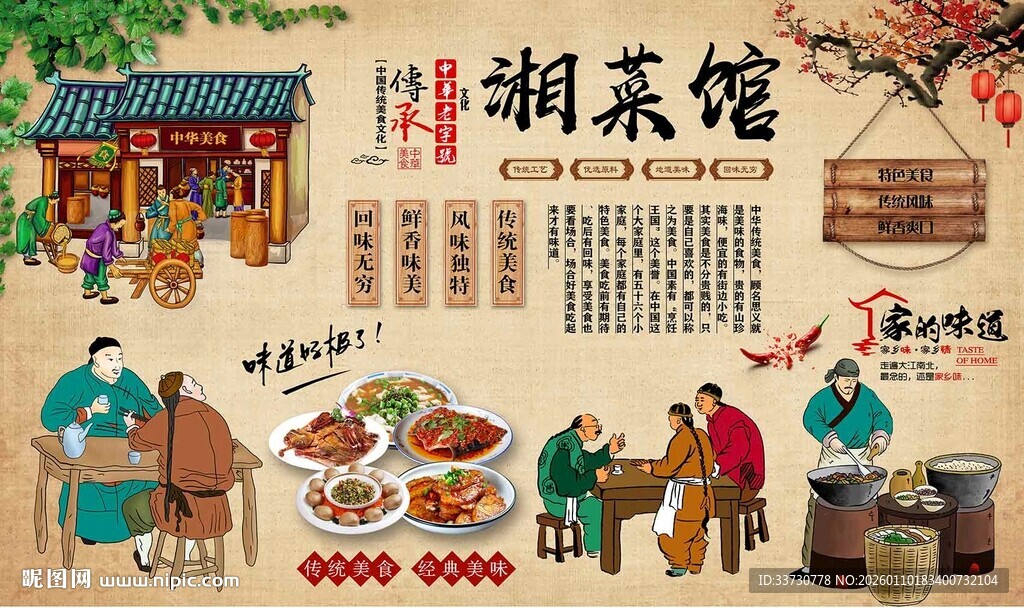 湘菜馆
中华老字號
文化
傳承
【中国传统美食文化】
中华美食
传统工艺
优选原料
地道美味
回味无穷
中华美食
特色美食
传统风味
鲜香爽口
传统美食
风味独特
鲜香味美
回味无穷
中华传统美食，顾名思义就
是美味的食物，贵的有山珍
海味，便宜的有街边小吃。
其实美食是不分贵贱的，只
要是自己喜欢的，都可以称
之为美食。中国素有“烹饪
王国”这个美誉。在中国这
个大家庭里，有五十六个小
家庭，每个家庭都有自己的
特色美食。美食吃前有期待
、吃后有回味，享受美食也
要看场合，场合好美食吃起
来才有味道。
家的味道
家乡味·家乡情
TASTE
OF HOME
走遍大江南北，
最念的，还是家乡味...
味道好极了！
传统美食
经典美味
昵图网 www.nipic.com
ID:33730778 NO:20260110183400732104